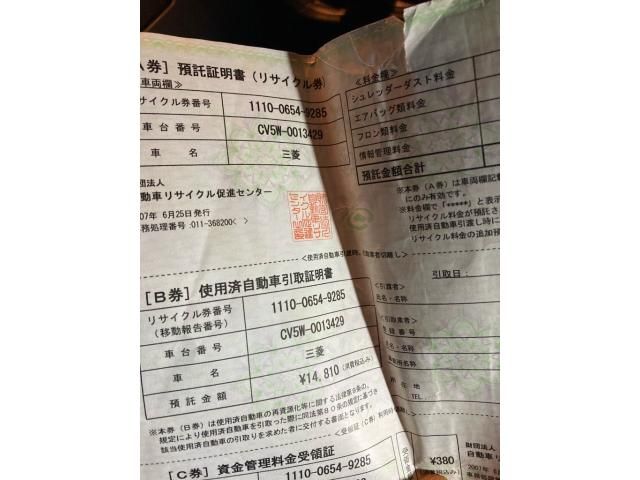 A券］預託証明書（リサイクル券）
車両欄≫
サイクル券番号 1110-0654-9285
車台番号 CV5W-0013429
車 名 三菱
団法人
動車リサイクル促進センター
07年 6月25日発行
務処理番号:011-368200< >
<使用済自動車引取時、
者控切離し>
≪料金欄≫
シュレッダーダスト料金
エアバッグ類料金
フロン類料金
情報管理料金
預託金額合計
※本券（A券）は車両欄記載
にのみ有効です。
※料金欄で「*****」と表示
リサイクル料金が預託さ
使用済自動車引渡し時に
リサイクル料金の追加預
［B券］使用済自動車引取証明書
リサイクル券番号 1110-0654-9285
(移動報告番号)
車台番号 CV5W-0013429
車 名 三菱
預託金額 ¥14,810(消費税込み)
※本券（B券）は使用済自動車の再資源化等に関する法律第9条の、
規定により使用済自動車を引取った際に同法第80条の規定に基づき
該当使用済自動車の引取りを求めた者に交付する書面となります。
引取日：
<引渡者>
氏名・名称
<引取業者>
登録番号
氏名・名称
事業所名称
所在地
TEL
［C券］資金管理料金受領証
1110-0654-9285
受領証（C券）利用時切離し>
¥380
(消費税込み)
財団法人
自動車リ
2007年 6